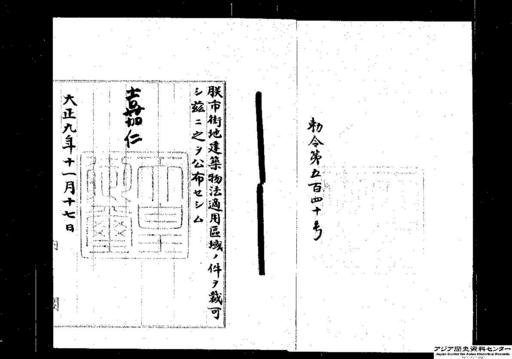 勅令第五百四十号
朕市街地建築物法適用区域ノ件ヲ裁可
シ茲ニ之ヲ公布セシム
嘉仁
大正九年十一月十七日
アジア歴史資料センター
Japan Center for Asian Historical Records